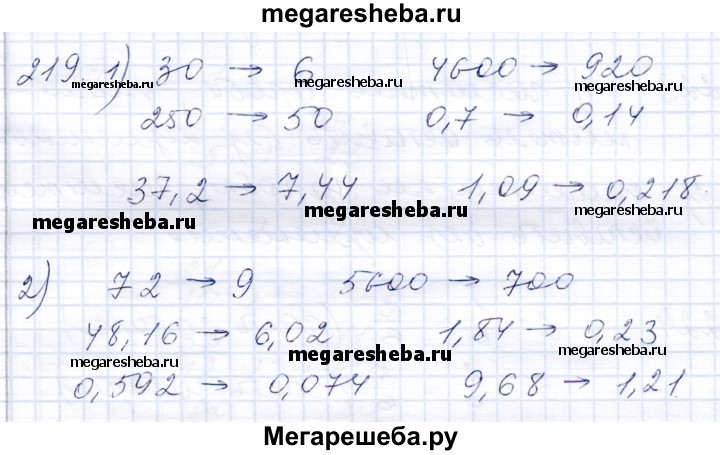 megaresheba.ru
219 1) 30 → 6 4600 → 920
megaresheba.ru megaresheba.ru
250 → 50 0,7 → 0,14
37,2 → 7,44 1,09 → 0,218
megaresheba.ru megaresheba.ru megaresheba.ru
2) 72 → 9 5600 → 700
48,16 → 6,02 1,84 → 0,23
megaresheba.ru megaresheba.ru megaresheba.ru
0,592 → 0,074 9,68 → 1,21
Мегарешеба.ру